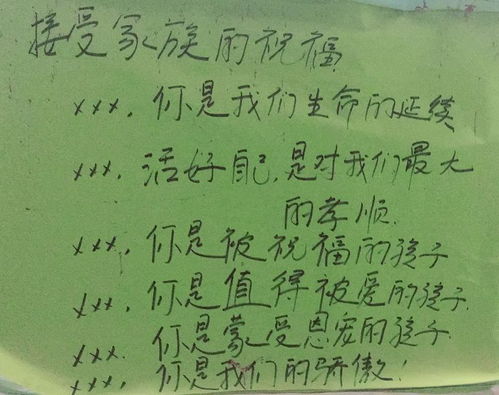 接受家族的祝福
xxx. 你是我们生命的延续
xxx. 活好自己,是对我们最大
的孝顺.
xxx. 你是被祝福的孩子
xxx. 你是值得被爱的孩子.
xxx. 你是蒙受恩宠的孩子.
xxx. 你是我们的骄傲!